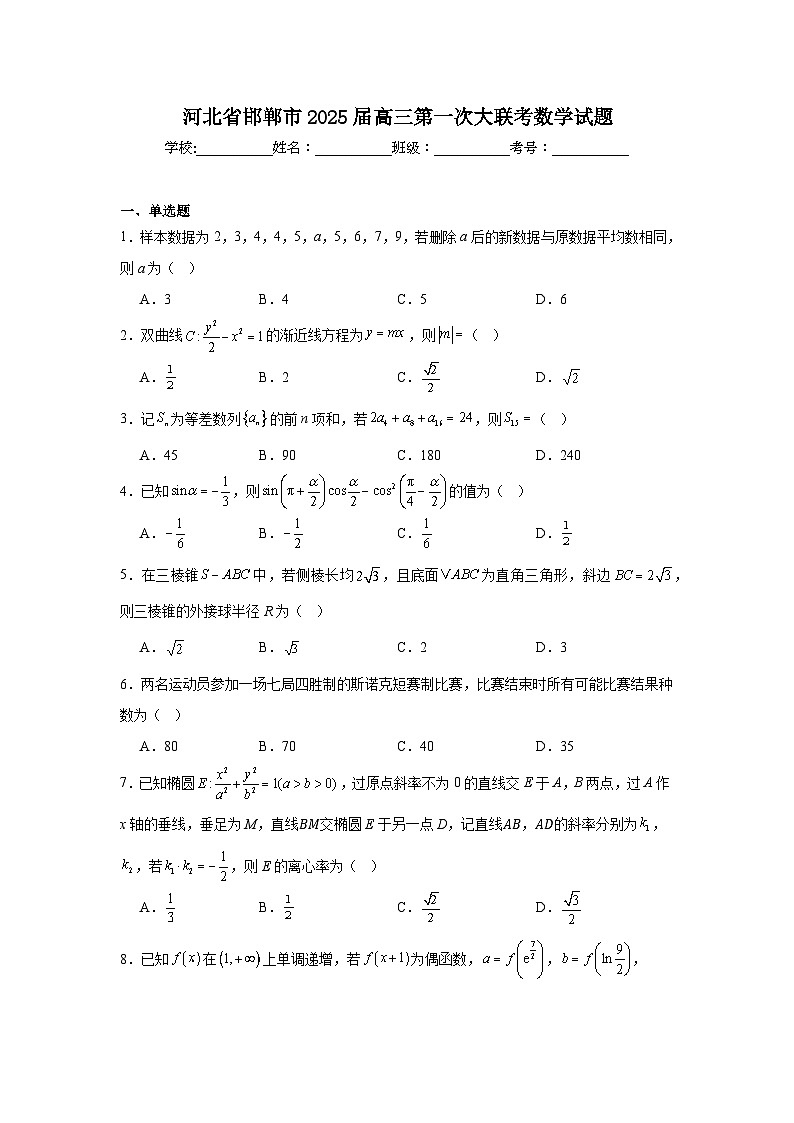 河北省邯郸市2025届高三第一次大联考数学试题
学校:___________姓名：___________班级：___________考号：___________
一、单选题
1．样本数据为2，3，4，4，5，a，5，6，7，9，若删除a后的新数据与原数据平均数相同，
则a为（ ）
A．3 B．4 C．5 D．6
2．双曲线 C:y²/2－x²＝1 的渐近线方程为 y＝mx，则|m|＝（ ）
A．1/2 B．2 C．√2/2 D．√2
3．记Sₙ为等差数列{aₙ}的前n项和，若2a₄＋a₈＋a₁₆＝24，则S₁₅＝（ ）
A．45 B．90 C．180 D．240
4．已知sinα＝－1/3，则sin(π＋α/2)cos α/2－cos²(π/4－α/2)的值为（ ）
A．－1/6 B．－1/2 C．1/6 D．1/2
5．在三棱锥S－ABC中，若侧棱长均2√3，且底面∨ABC为直角三角形，斜边BC＝2√3，
则三棱锥的外接球半径R为（ ）
A．√2 B．√3 C．2 D．3
6．两名运动员参加一场七局四胜制的斯诺克短赛制比赛，比赛结束时所有可能比赛结果种
数为（ ）
A．80 B．70 C．40 D．35
7．已知椭圆E:x²/a²＋y²/b²＝1(a＞b＞0)，过原点斜率不为0的直线交E于A，B两点，过A作
x轴的垂线，垂足为M，直线BM交椭圆E于另一点D，记直线AB，AD的斜率分别为k₁，
k₂，若k₁·k₂＝－1/2，则E的离心率为（ ）
A．1/3 B．1/2 C．√2/2 D．√3/2
8．已知f(x)在(1,+∞)上单调递增，若f(x+1)为偶函数，a＝f(e^(7/2))，b＝f(ln 9/2)，